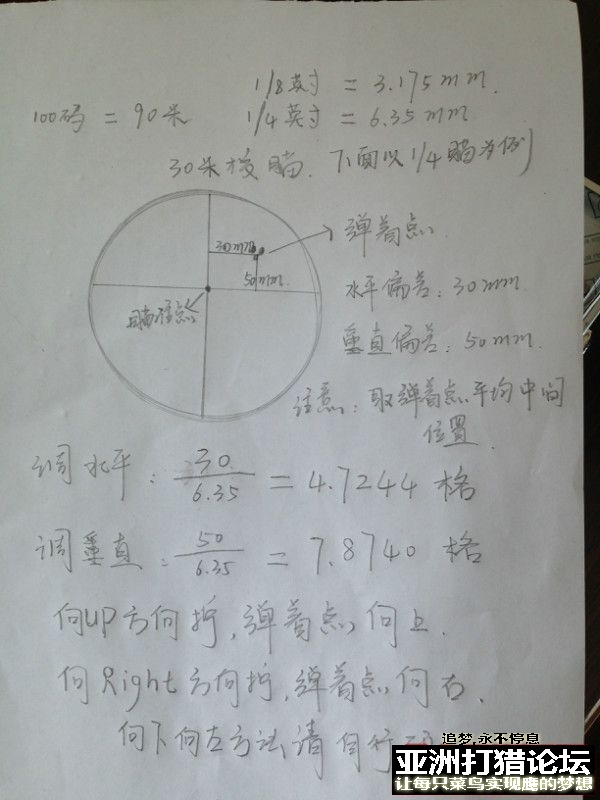 1/8英寸 = 3.175mm.
100码 = 90米 1/4英寸 = 6.35mm.
30米校瞄. 下面以1/4瞄为例)
30mm
弹着点.
50mm.
水平偏差: 30mm.
瞄准点
垂直偏差: 50mm.
注意: 取弹着点平均中间
位置.
调水平: 30/6.35 = 4.7244 格
调垂直: 50/6.35 = 7.8740 格
向UP方向拧, 弹着点向上.
向Right方向拧, 弹着点向右.
向下向左方法请自行
追梦,永不停息
亚洲打猎论坛
让每只菜鸟实现鹰的梦想